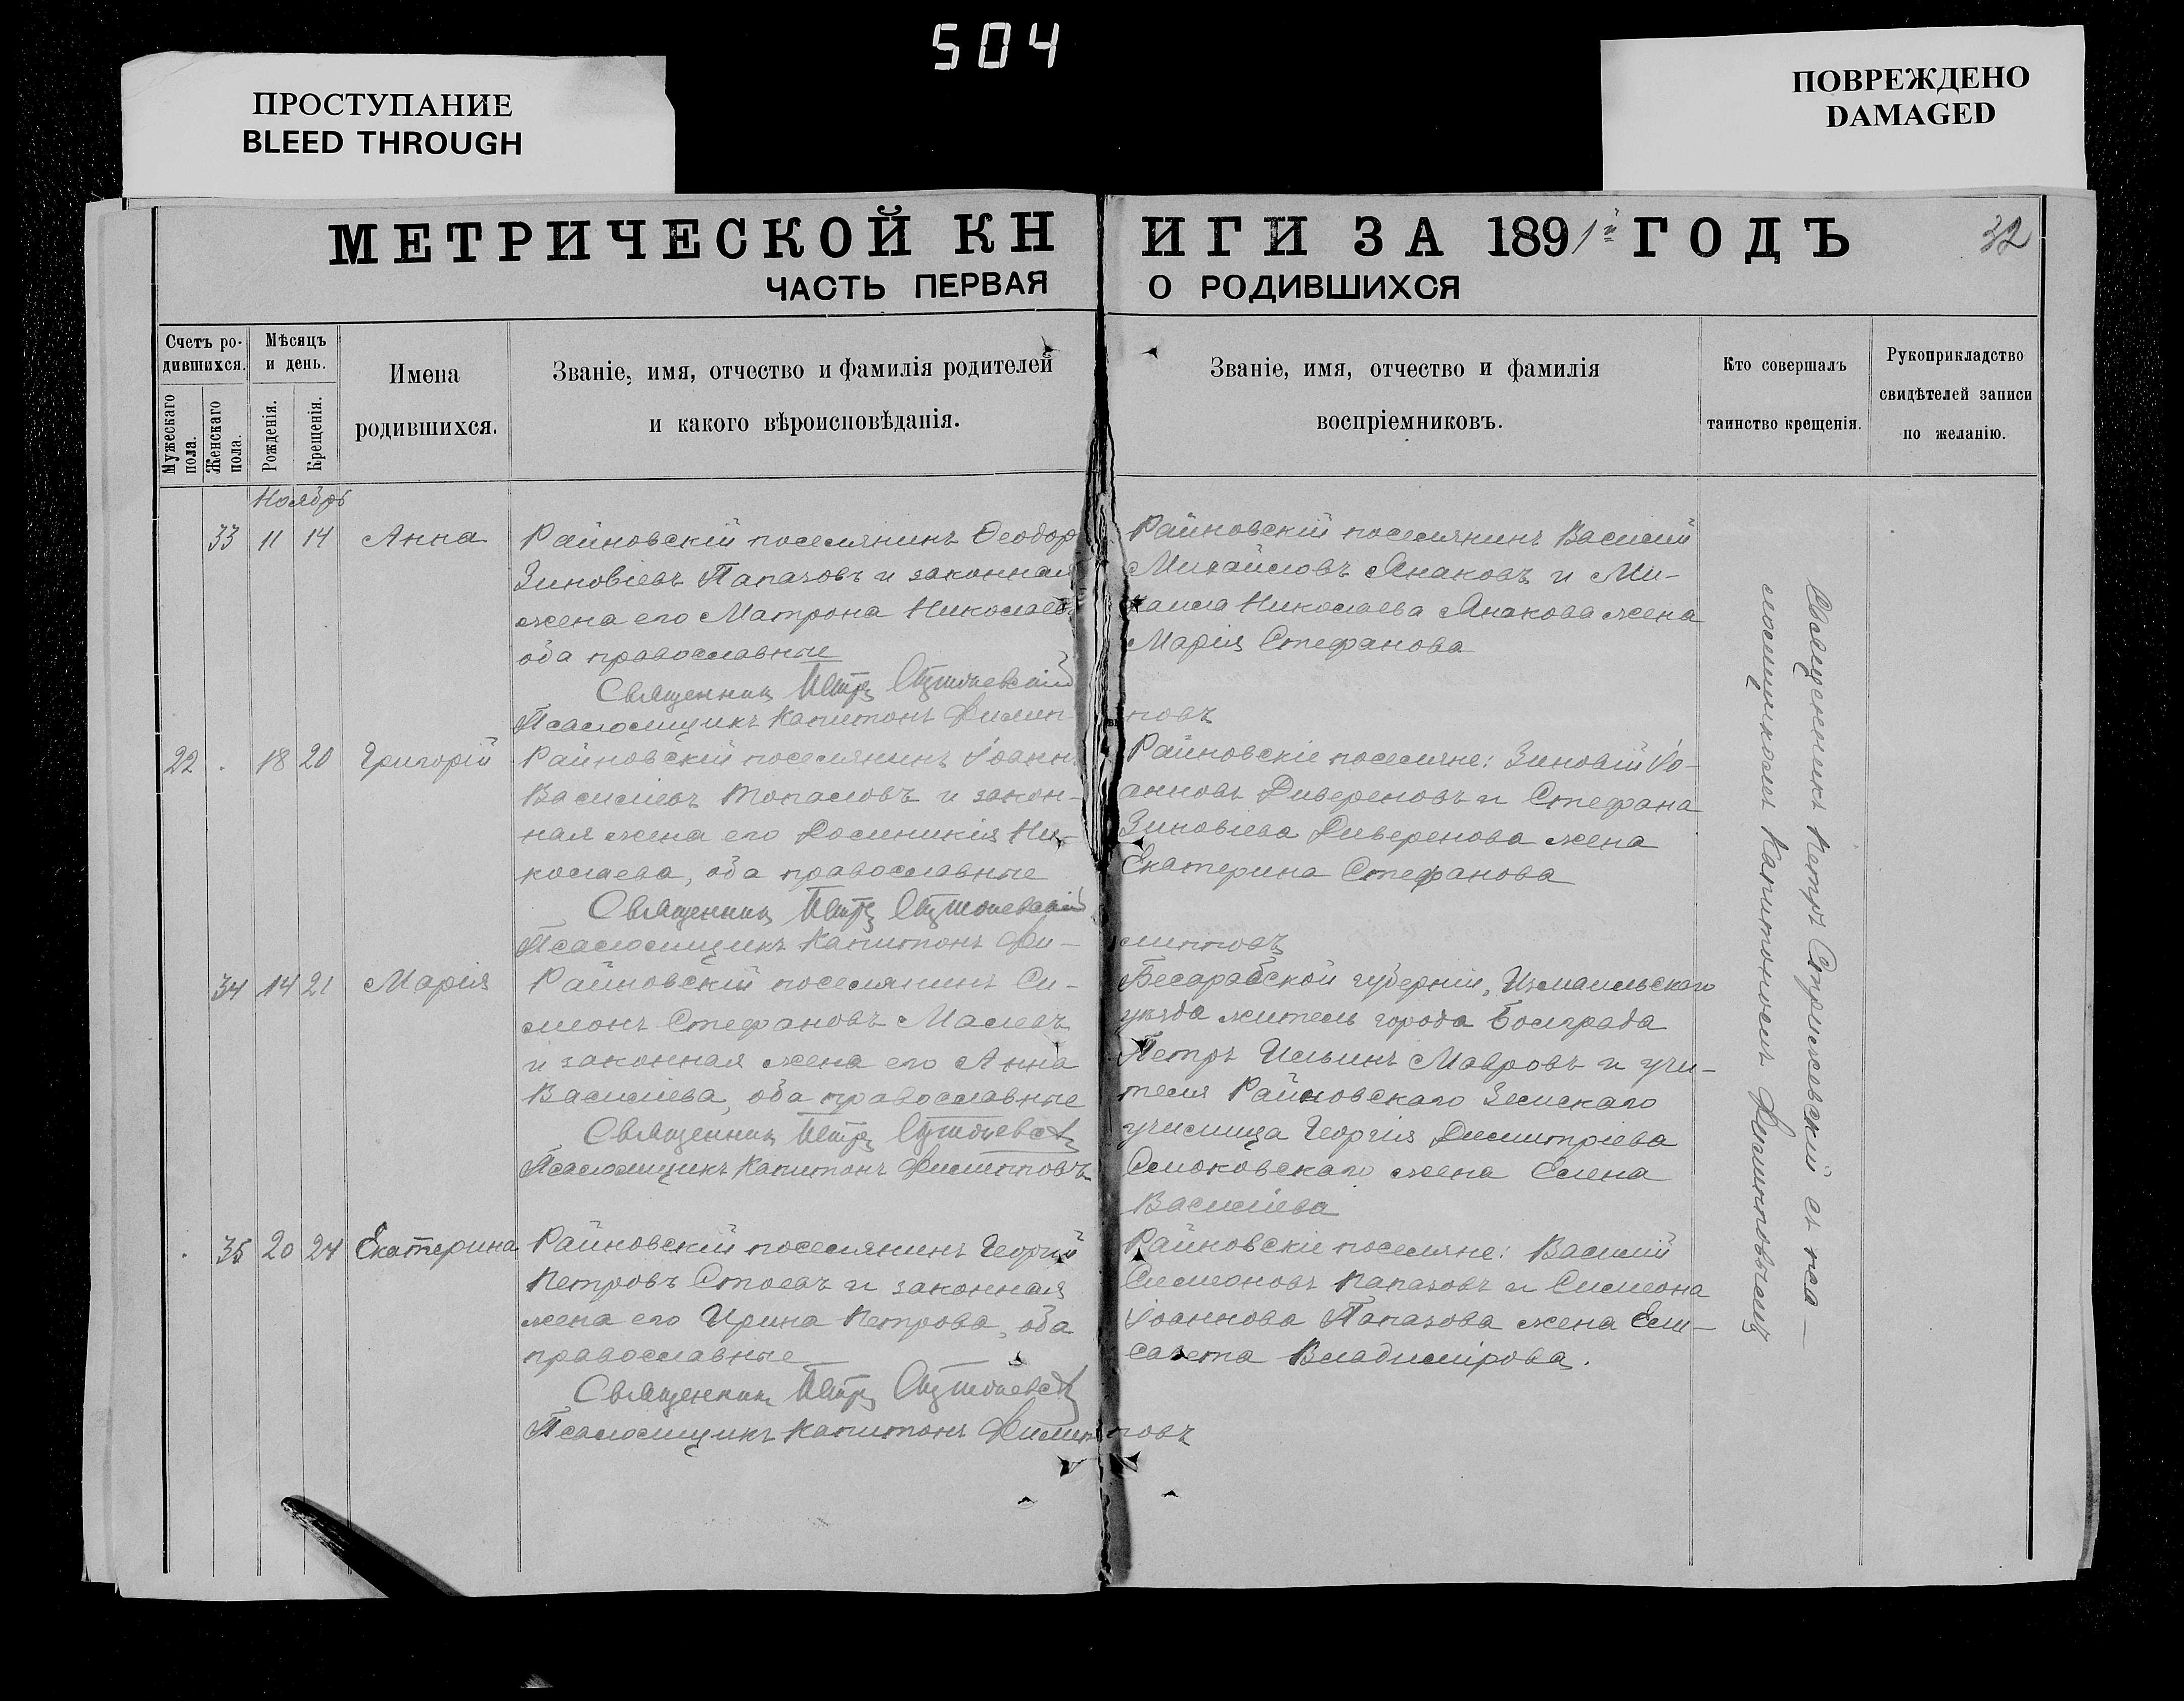 504
ПРОСТУПАНИЕ
BLEED THROUGH
ПОВРЕЖДЕНО
DAMAGED
МЕТРИЧЕСКОЙ КН
ИГИ ЗА 1891й ГОДЪ
32
ЧАСТЬ ПЕРВАЯ
О РОДИВШИХСЯ
Счетъ ро-
дившихся.
Мужескаго пола.
Женскаго пола.
Мѣсяцъ
и день.
Рожденія.
Крещенія.
Имена
родившихся.
Званіе, имя, отчество и фамилія родителей
и какого вѣроисповѣданія.
Званіе, имя, отчество и фамилія
воспріемниковъ.
Кто совершалъ
таинство крещенія.
Рукоприкладство
свидѣтелей записи
по желанію.
Ноябрь
33 11 14 Анна
Раиновскій поселянинъ Ѳеодор
Зиновіевъ Папазовъ и законная
жена его Матрона Николаев
оба православные
Священникъ Петръ
Псаломщикъ Капитонъ Филип-
повъ
Раиновскій поселянинъ Василий
Михайловъ Янаковъ и Ми-
хаила Николаева Янакова жена
Марія Стефанова
22 . 18 20 Григорій
Раиновскій поселянинъ Іоаннъ
Василіевъ Топаловъ и закон-
ная жена его Домникія Ни-
колаева, оба православные
Священникъ Петръ
Псаломщикъ Капитонъ Фи-
липповъ
Раиновскіе поселяне: Зиновій Іо-
анновъ Дивереновъ и Стефана
Зиновіева Диверенова жена
Екатерина Стефанова
34 14 21 Марія
Раиновскій поселянинъ Си-
меонъ Стефановъ Малевъ
и законная жена его Анна
Василіева, оба православные
Священникъ Петръ
Псаломщикъ Капитонъ Филипповъ
Бесарабской губерніи, Измаильскаго
уѣзда житель города Болграда
Петръ Ильинъ Мавровъ и учи-
теля Раиновскаго Земскаго
училища Георгія Димитріева
жена Елена
Василіева
. 35 20 24 Екатерина
Раиновскій поселянинъ Георгій
Петровъ Стоевъ и законная
жена его Ирина Петрова, оба
православные
Священникъ Петръ
Псаломщикъ Капитонъ Филип
повъ
Раиновскіе поселяне: Василий
Симеоновъ Папазовъ и Симеона
Іоаннова Папазова жена Ели-
савета Владимірова.
Священникъ Петръ съ пса-
ломщикомъ Капитономъ Филипповымъ